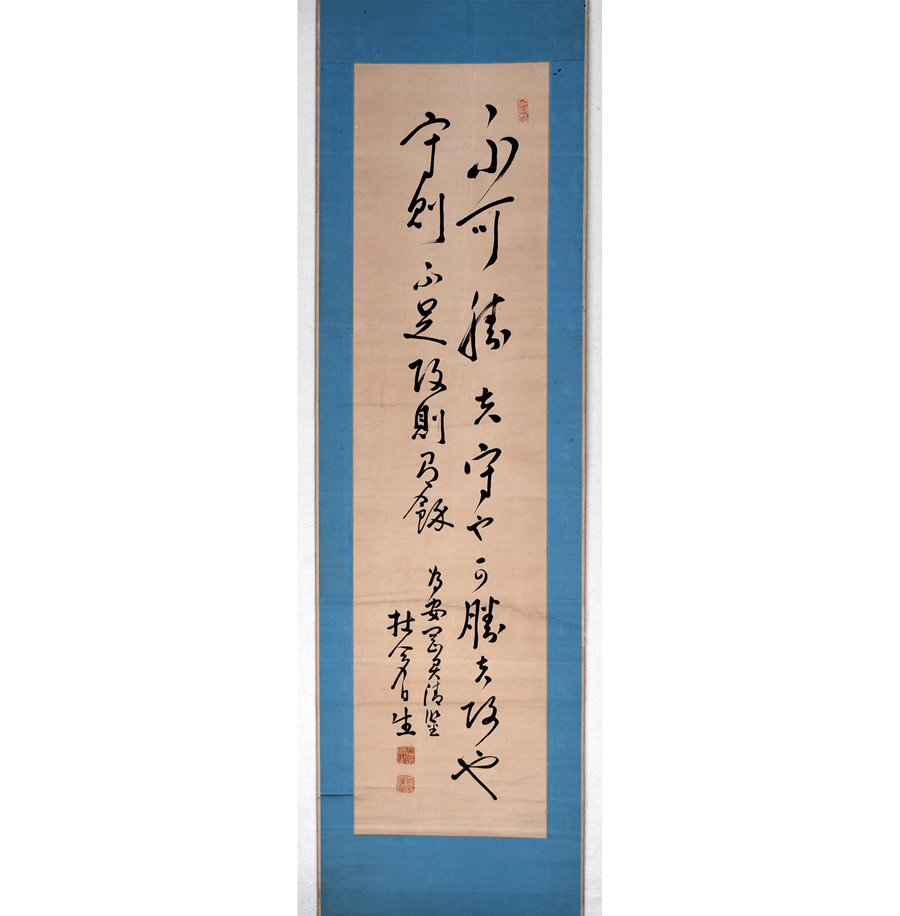 不可勝者守也可勝者攻也
守則不足攻則有餘
為安罡吳清鑒
杜今日生